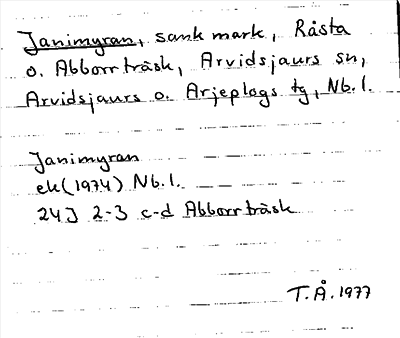 Janimyran, sank mark, Råsta
o. Abborrträsk, Arvidsjaurs sn,
Arvidsjaurs o. Arjeplogs tg, Nb. l.
Janimyran
ek(1974) Nb. l.
24J 2-3 c-d Abborrträsk
T.Å. 1977